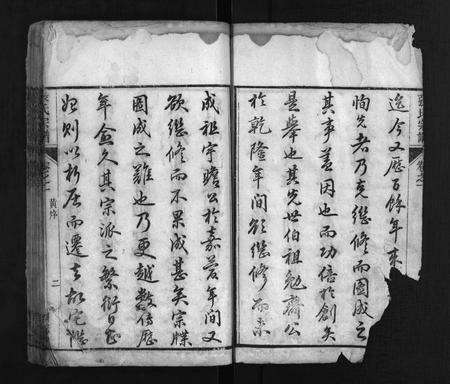 迄今又歷百餘年來
恂先者乃克繼修而圖成之
其事蓋因也而功倍於創矣
是舉也其先世伯祖勉齋公
於乾隆年間欲繼修而未
成祖宇瞻公於嘉慶年間又
欲繼修而不果成甚矣宗牒
圖成之難也乃更越數傳歷
年愈久其宗派之繁衍日
則以析居而遷
黃燁
二